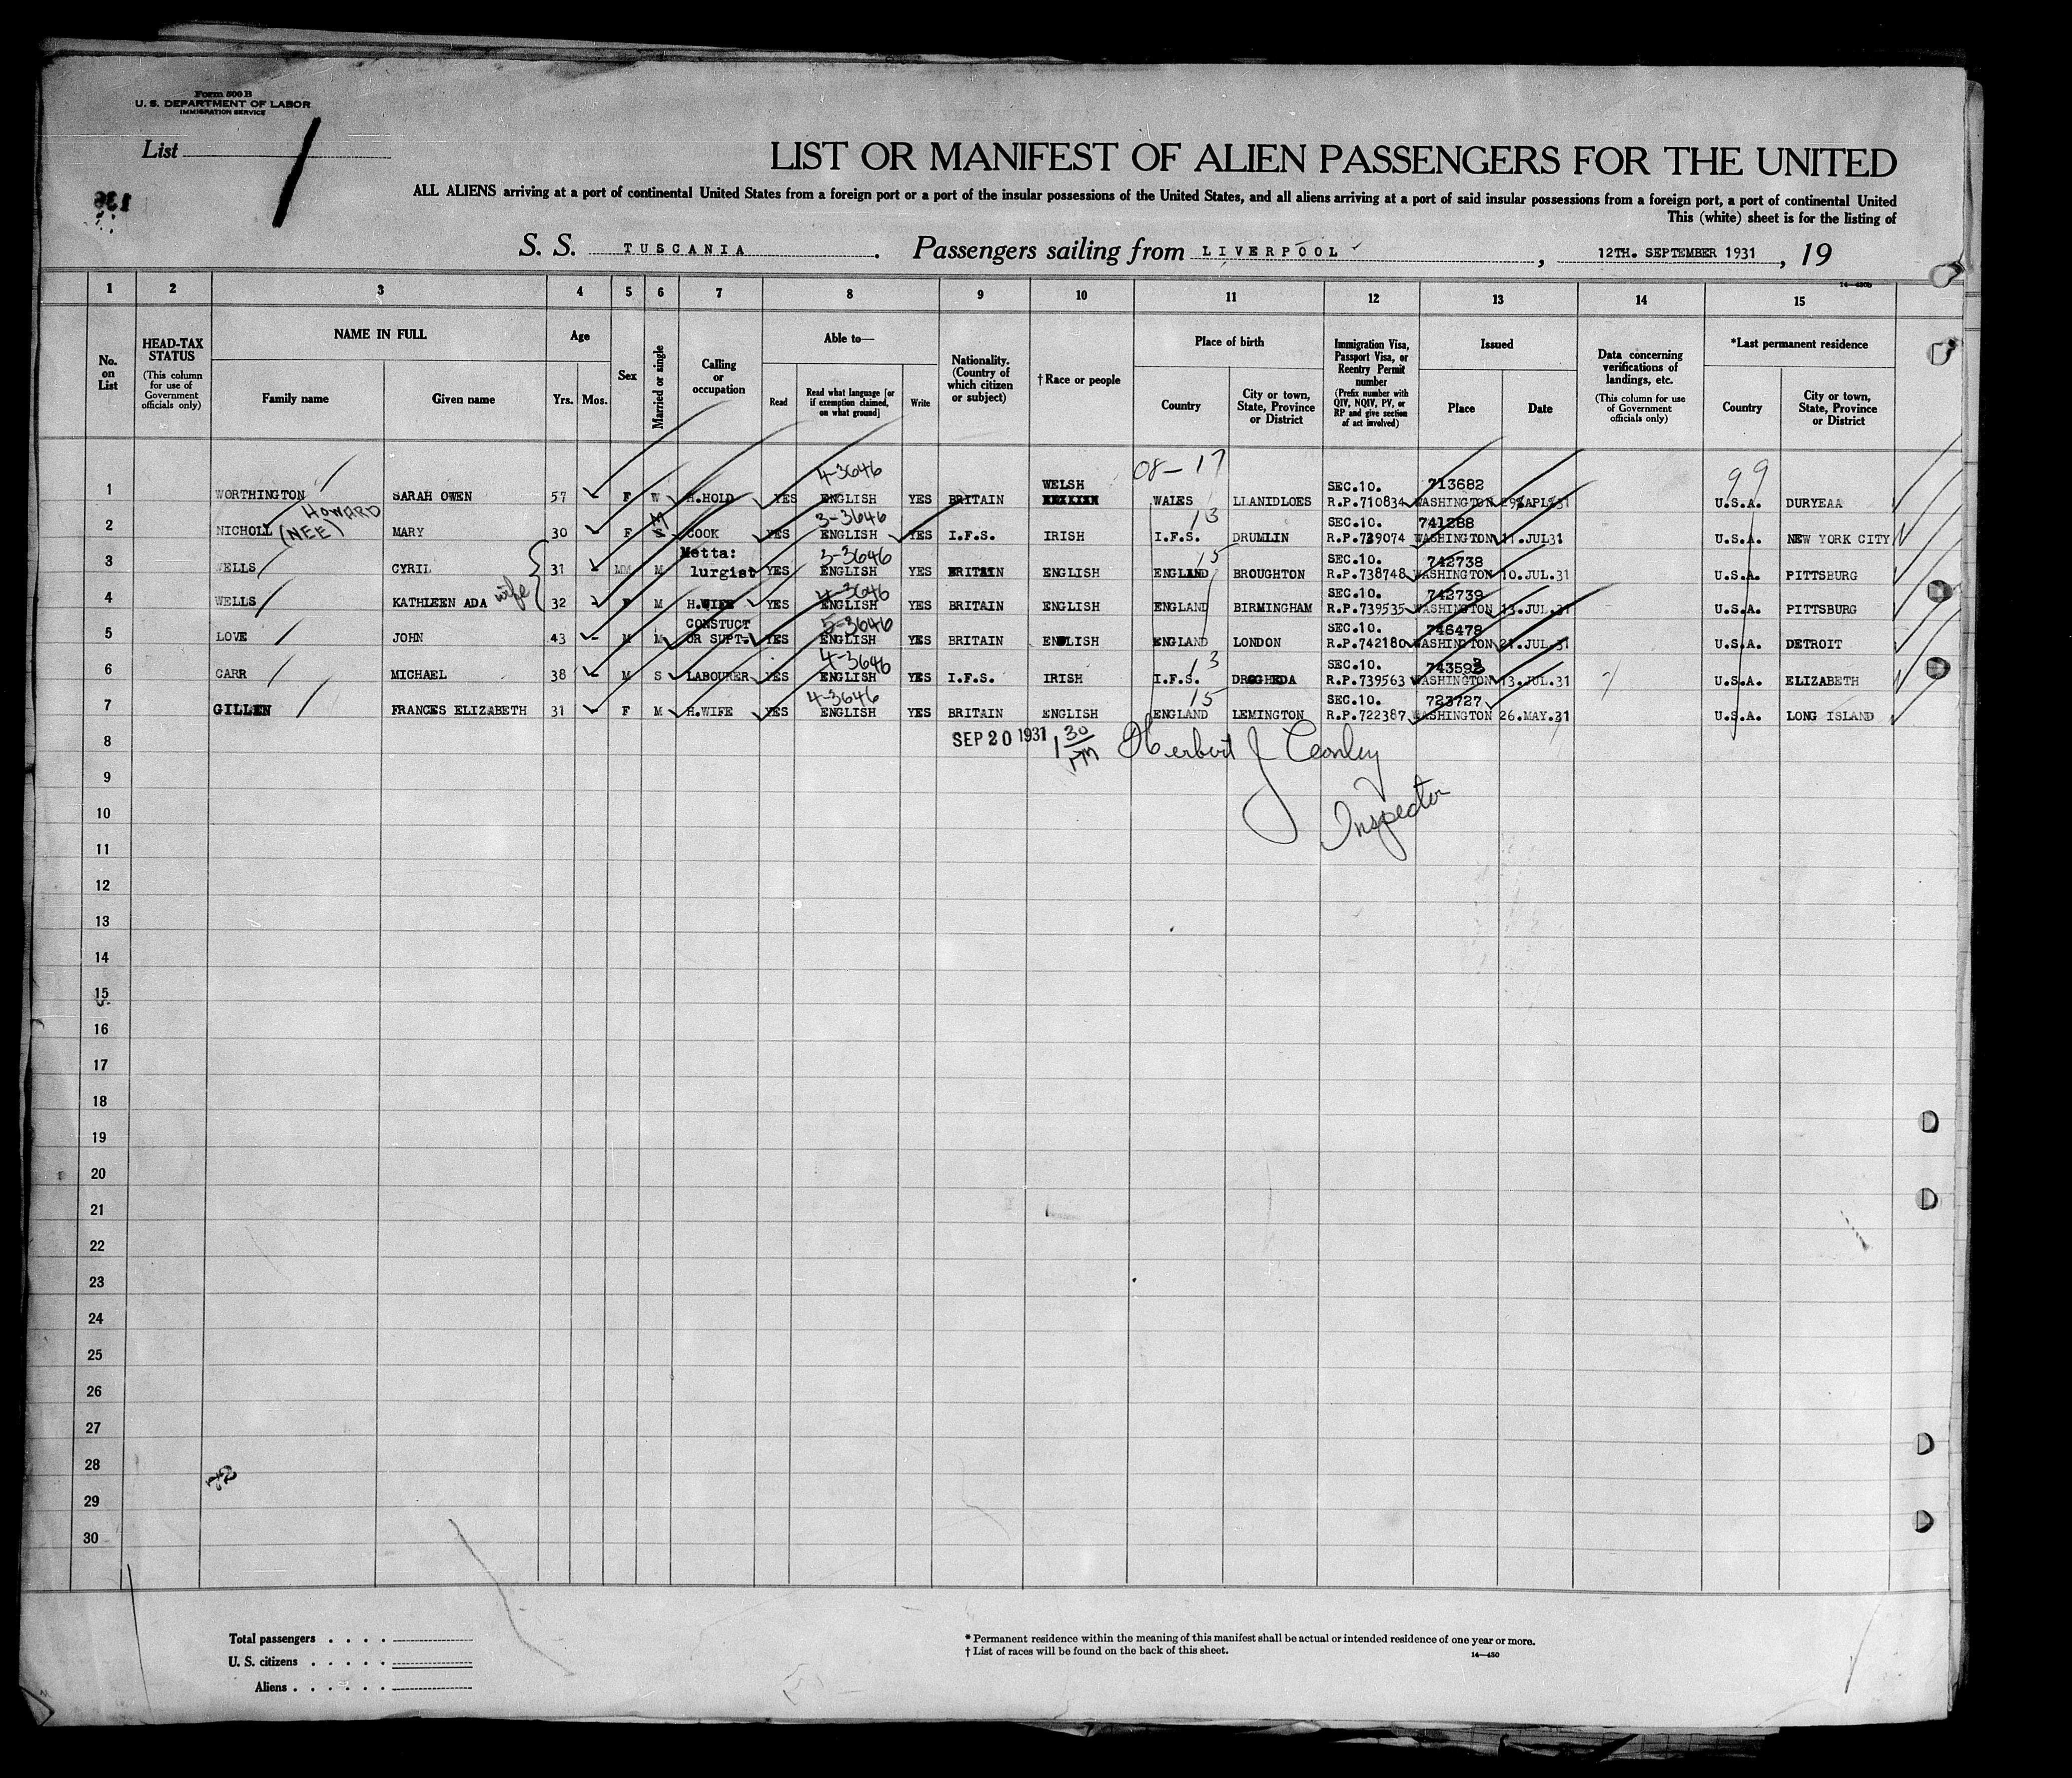 Form 500 B
U. S. DEPARTMENT OF LABOR
IMMIGRATION SERVICE
List 1
136
LIST OR MANIFEST OF ALIEN PASSENGERS FOR THE UNITED
ALL ALIENS arriving at a port of continental United States from a foreign port or a port of the insular possessions of the United States, and all aliens arriving at a port of said insular possessions from a foreign port, a port of continental United
This (white) sheet is for the listing of
S. S. TUSCANIA. Passengers sailing from LIVERPOOL, 12TH. SEPTEMBER 1931, 19
14—430b
1 2 3 4 5 6 7 8 9 10 11 12 13 14 15
No. on List
HEAD-TAX STATUS (This column for use of Government officials only)
NAME IN FULL
Family name
Given name
Age
Yrs. Mos.
Sex
Married or single
Calling or occupation
Able to—
Read
Read what language [or if exemption claimed, on what ground]
Write
Nationality. (Country of which citizen or subject)
†Race or people
Place of birth
Country
City or town, State, Province or District
Immigration Visa, Passport Visa, or Reentry Permit number (Prefix number with QIV, NQIV, PV, or RP and give section of act involved)
Issued
Place
Date
Data concerning verifications of landings, etc. (This column for use of Government officials only)
*Last permanent residence
Country
City or town, State, Province or District
4-3646 08-17 99
WELSH SEC.10. 713682
1 WORTHINGTON SARAH OWEN 57 F W H.HOLD YES ENGLISH YES BRITAIN WALES LLANIDLOES R.P.710834 WASHINGTON APL 31 U.S.A. DURYEAA
HOWARD M 3-3646 13 SEC.10. 741288
2 NICHOLL (NEE) MARY 30 F S COOK YES ENGLISH YES I.F.S. IRISH I.F.S. DRUMLIN R.P.739074 WASHINGTON 11.JUL31 U.S.A. NEW YORK CITY
Metta: 3-3646 15 SEC.10. 742738
3 WELLS CYRIL 31 M M lurgist YES ENGLISH YES BRITAIN ENGLISH ENGLAND BROUGHTON R.P.738748 WASHINGTON 10.JUL.31 U.S.A. PITTSBURG
4-3646 SEC.10. 742739
4 WELLS KATHLEEN ADA wife 32 F M H.WIFE YES ENGLISH YES BRITAIN ENGLISH ENGLAND BIRMINGHAM R.P.739535 WASHINGTON 13.JUL.31 U.S.A. PITTSBURG
CONSTUCT 5-3646 SEC.10. 746478
5 LOVE JOHN 43 M M OR SUPT- YES ENGLISH YES BRITAIN ENGLISH ENGLAND LONDON R.P.742180 WASHINGTON 21.JUL.31 U.S.A. DETROIT
4-3646 13 SEC.10. 743593
6 CARR MICHAEL 38 M S LABOURER YES ENGLISH YES I.F.S. IRISH I.F.S. DROGHEDA R.P.739563 WASHINGTON 13.JUL.31 U.S.A. ELIZABETH
4-3646 15 SEC.10. 723727
7 GILLEN FRANCES ELIZABETH 31 F M H.WIFE YES ENGLISH YES BRITAIN ENGLISH ENGLAND LEMINGTON R.P.722387 WASHINGTON 26.MAY.31 U.S.A. LONG ISLAND
8 SEP 20 1931 1 30 PM Herbert J Conley
9
10 Inspector
11
12
13
14
15
16
17
18
19
20
21
22
23
24
25
26
27
28
29
30
Total passengers . . . .
U. S. citizens . . . . .
Aliens . . . . . .
* Permanent residence within the meaning of this manifest shall be actual or intended residence of one year or more.
† List of races will be found on the back of this sheet.
14—430